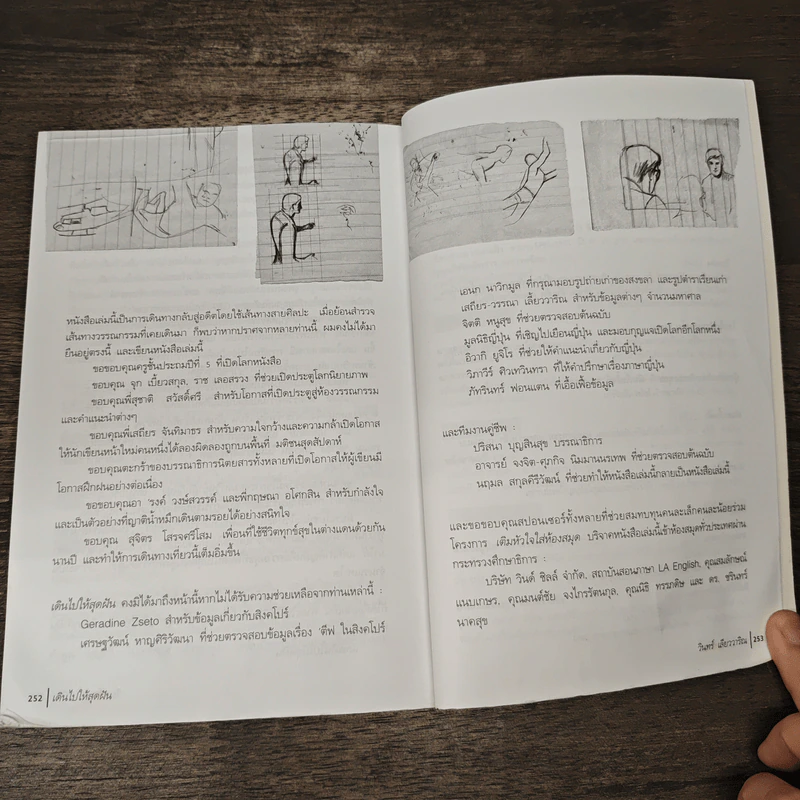 หนังสือเล่มนี้เป็นการเดินทางกลับสู่อดีตโดยใช้เส้นทางสายศิลปะ เมื่อย้อนสำรวจ
เส้นทางวรรณกรรมที่เคยเดินมา ก็พบว่าหากปราศจากหลายท่านนี้ ผมคงไม่ได้มา
ยืนอยู่ตรงนี้ และเขียนหนังสือเล่มนี้
ขอขอบคุณครูชั้นประถมปีที่ 5 ที่เปิดโลกหนังสือ
ขอบคุณ จุก เบี้ยวสกุล, ราช เลอสรวง ที่ช่วยเปิดประตูโลกนิยายภาพ
ขอบคุณพี่สุชาติ สวัสดิ์ศรี สำหรับโอกาสที่เปิดประตูสู่ห้องวรรณกรรม
และคำแนะนำต่างๆ
ขอบคุณพี่เสถียร จันทิมาธร สำหรับความใจกว้างและความกล้าเปิดโอกาส
ให้นักเขียนหน้าใหม่คนหนึ่งได้ลองผิดลองถูกบนพื้นที่ มติชนสุดสัปดาห์
ขอบคุณตะกร้าของบรรณาธิการนิตยสารทั้งหลายที่เปิดโอกาสให้ผู้เขียนมี
โอกาสฝึกฝนอย่างต่อเนื่อง
ขอขอบคุณอา 'รงค์ วงษ์สวรรค์ และพี่กฤษณา อโศกสิน สำหรับกำลังใจ
และเป็นตัวอย่างที่ญาติน้ำหมึกเดินตามรอยได้อย่างสนิทใจ
ขอบคุณ สุจิตร โสรจศรีโสม เพื่อนที่ใช้ชีวิตทุกข์สุขในต่างแดนด้วยกัน
นานปี และทำให้การเดินทางเที่ยวนี้เต็มอิ่มขึ้น
เดินไปให้สุดฝัน คงมิได้มาถึงหน้านี้หากไม่ได้รับความช่วยเหลือจากท่านเหล่านี้ :
Geradine Zseto สำหรับข้อมูลเกี่ยวกับสิงคโปร์
เศรษฐวัฒน์ หาญศิริวัฒนา ที่ช่วยตรวจสอบข้อมูลเรื่อง 'ตีฟ ในสิงคโปร์
252 เดินไปให้สุดฝัน
เอนก นาวิกมูล ที่กรุณามอบรูปถ่ายเก่าของสงขลา และรูปตำราเรียนเก่า
เสถียร-วรรณา เลี้ยววาริณ สำหรับข้อมูลต่างๆ จำนวนมหาศาล
จิตติ หนูสุข ที่ช่วยตรวจสอบต้นฉบับ
มูลนิธิญี่ปุ่น ที่เชิญไปเยือนญี่ปุ่น และมอบกุญแจเปิดโลกอีกโลกหนึ่ง
อิวากิ ยูจิโร ที่ช่วยให้คำแนะนำเกี่ยวกับญี่ปุ่น
วิภาวีร์ ศิวเทวินทรา ที่ให้คำปรึกษาเรื่องภาษาญี่ปุ่น
ภัทรินทร์ ฟอนแตน ที่เอื้อเฟื้อข้อมูล
และทีมงานคู่ชีพ :
ปริสนา บุญสินสุข บรรณาธิการ
อาจารย์ จงจิต-ศุภกิจ นิมมานนรเทพ ที่ช่วยตรวจสอบต้นฉบับ
นฤมล สกุลศิริวัฒน์ ที่ช่วยทำให้หนังสือเล่มนี้กลายเป็นหนังสือเล่มนี้
และขอขอบคุณสปอนเซอร์ทั้งหลายที่ช่วยสมทบทุนคนละเล็กคนละน้อยร่วม
โครงการ เติมหัวใจใส่ห้องสมุด บริจาคหนังสือเล่มนี้เข้าห้องสมุดทั่วประเทศผ่าน
กระทรวงศึกษาธิการ :
บริษัท วินด์ ชิลล์ จำกัด, สถาบันสอนภาษา LA English, คุณสมลักษณ์
แนบเกษร, คุณมนต์ชัย จงไกรรัตนกุล, คุณนิธิ ทรรภดิษ และ ดร. ชรินทร์
นาคสุข
วินทร์ เลียววาริณ 253